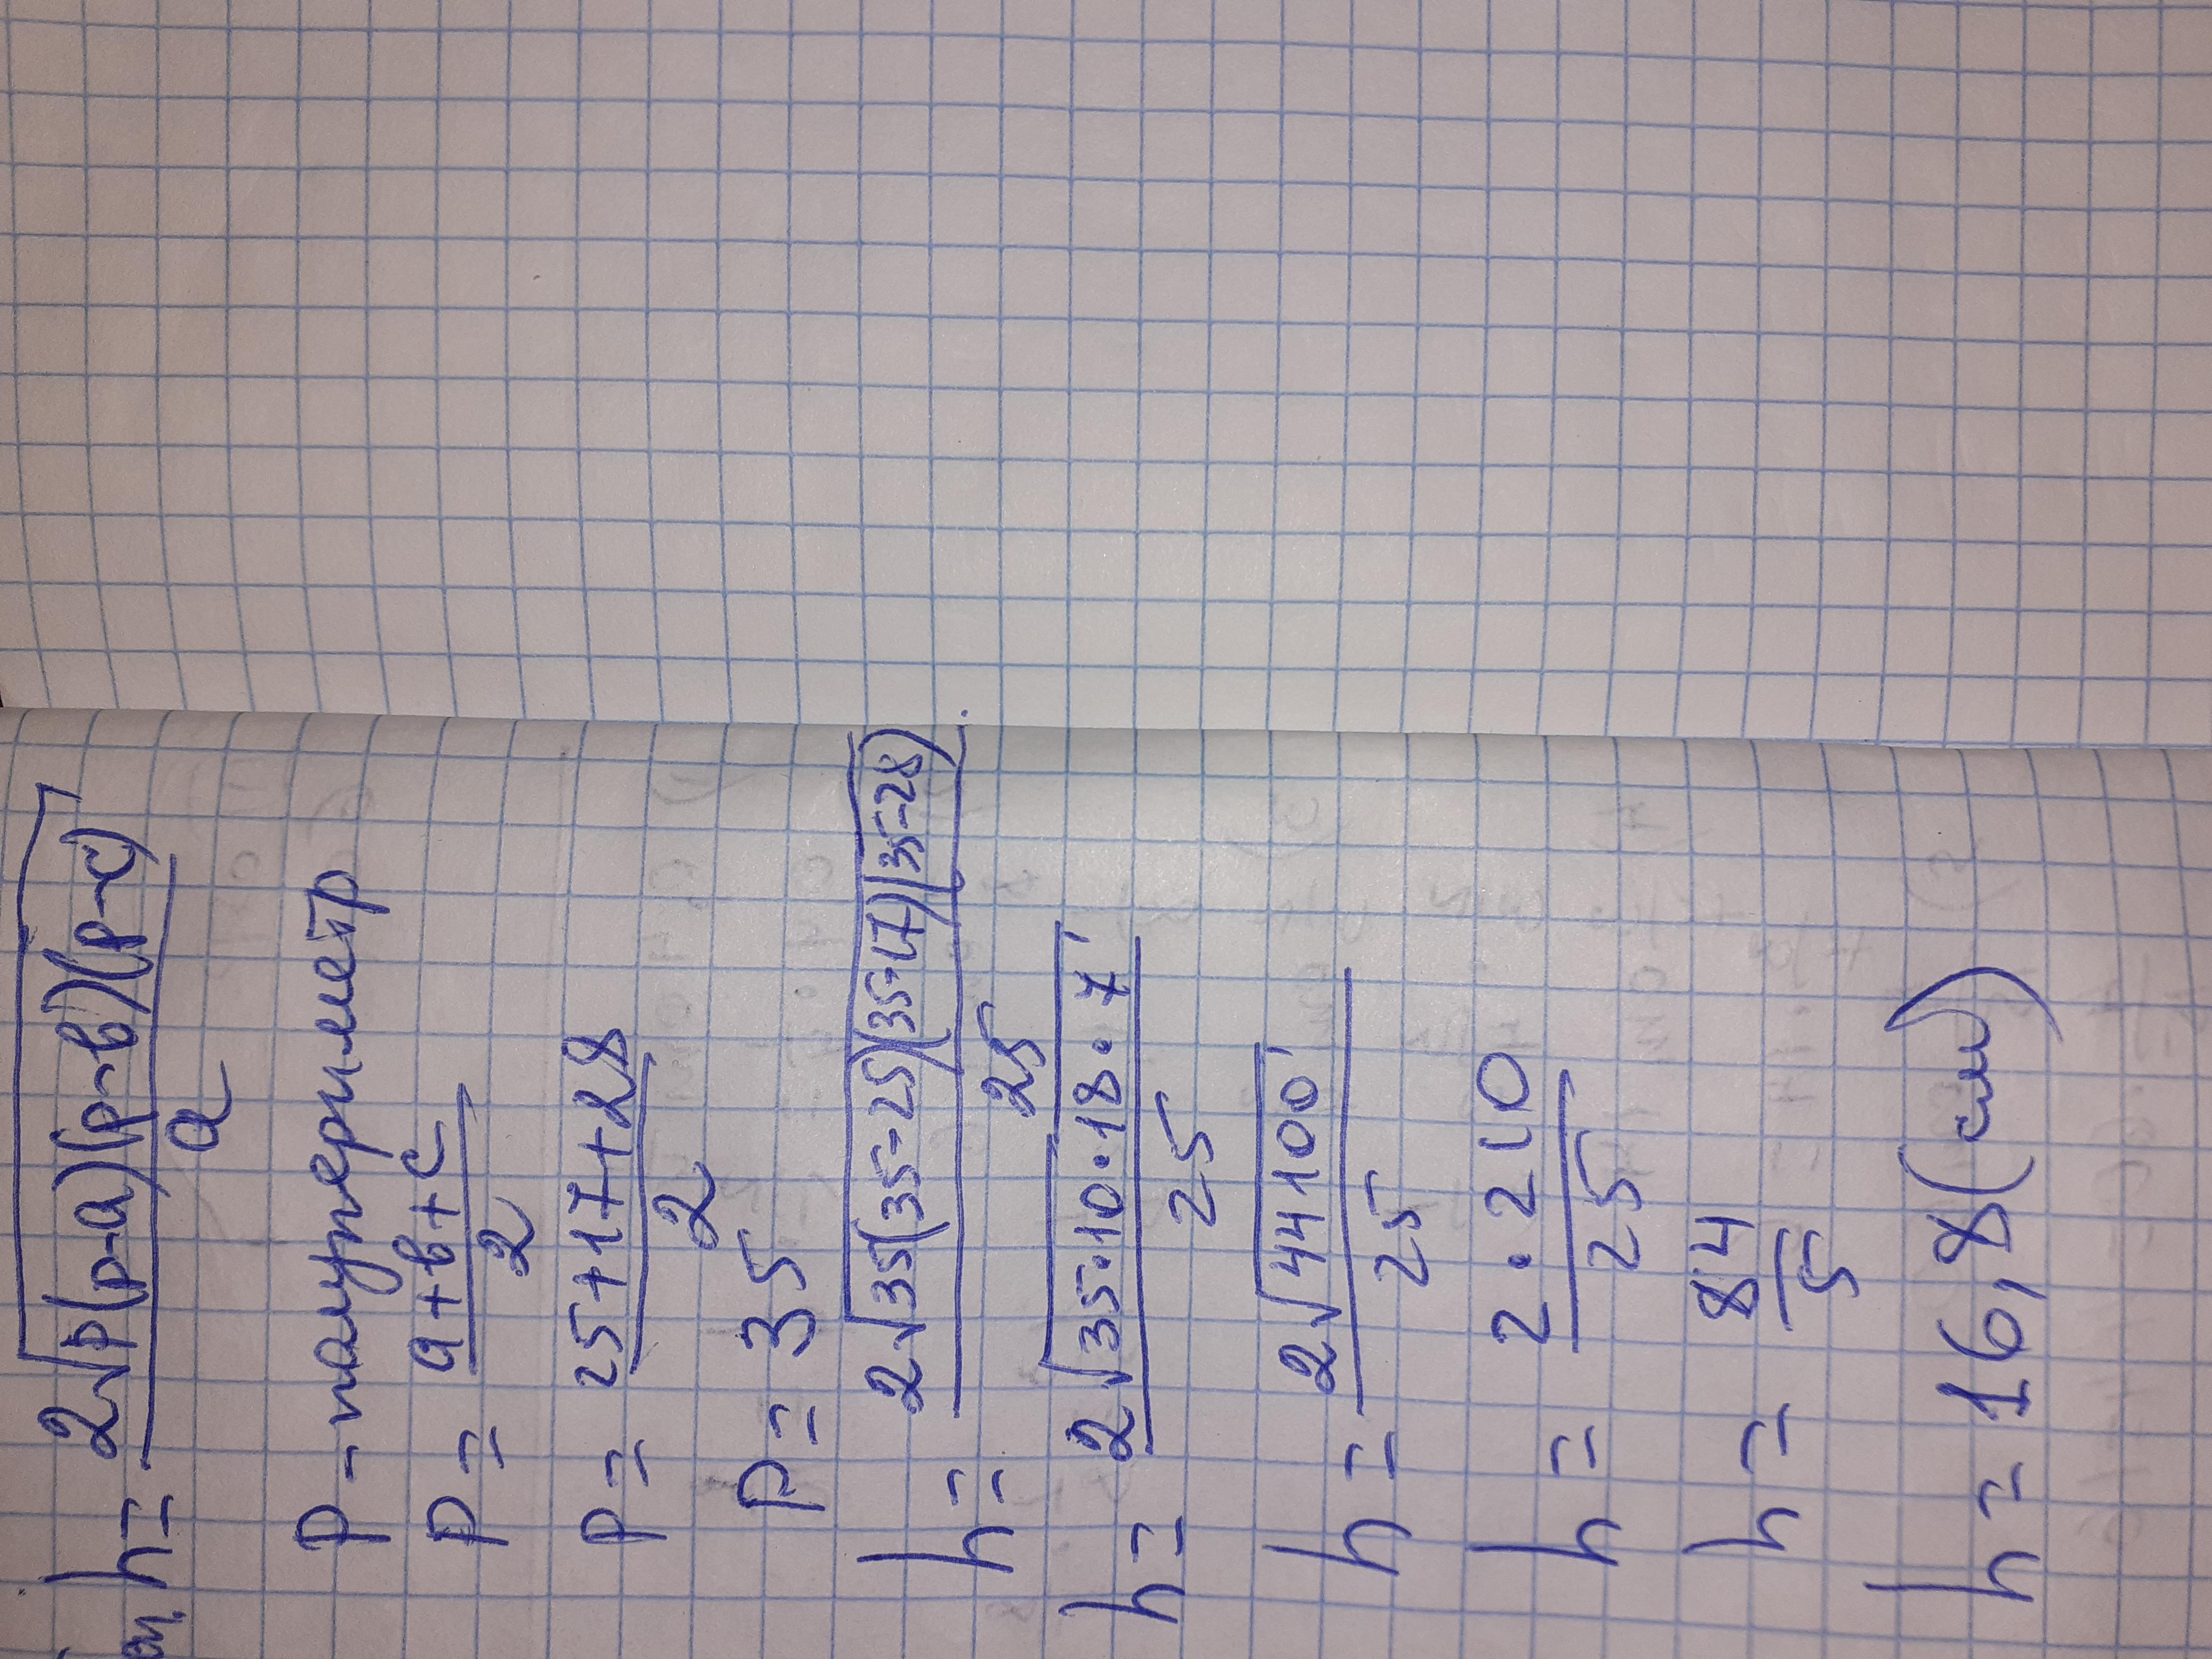 h = 2√p(p-a)(p-b)(p-c) / a
p - полупериметр
p = a+b+c / 2
p = 25+17+28 / 2
p = 35
h = 2√35(35-25)(35-17)(35-28) / 25
h = 2√35·10·18·7 / 25
h = 2√44100 / 25
h = 2·210 / 25
h = 84 / 5
h = 16,8 (см)